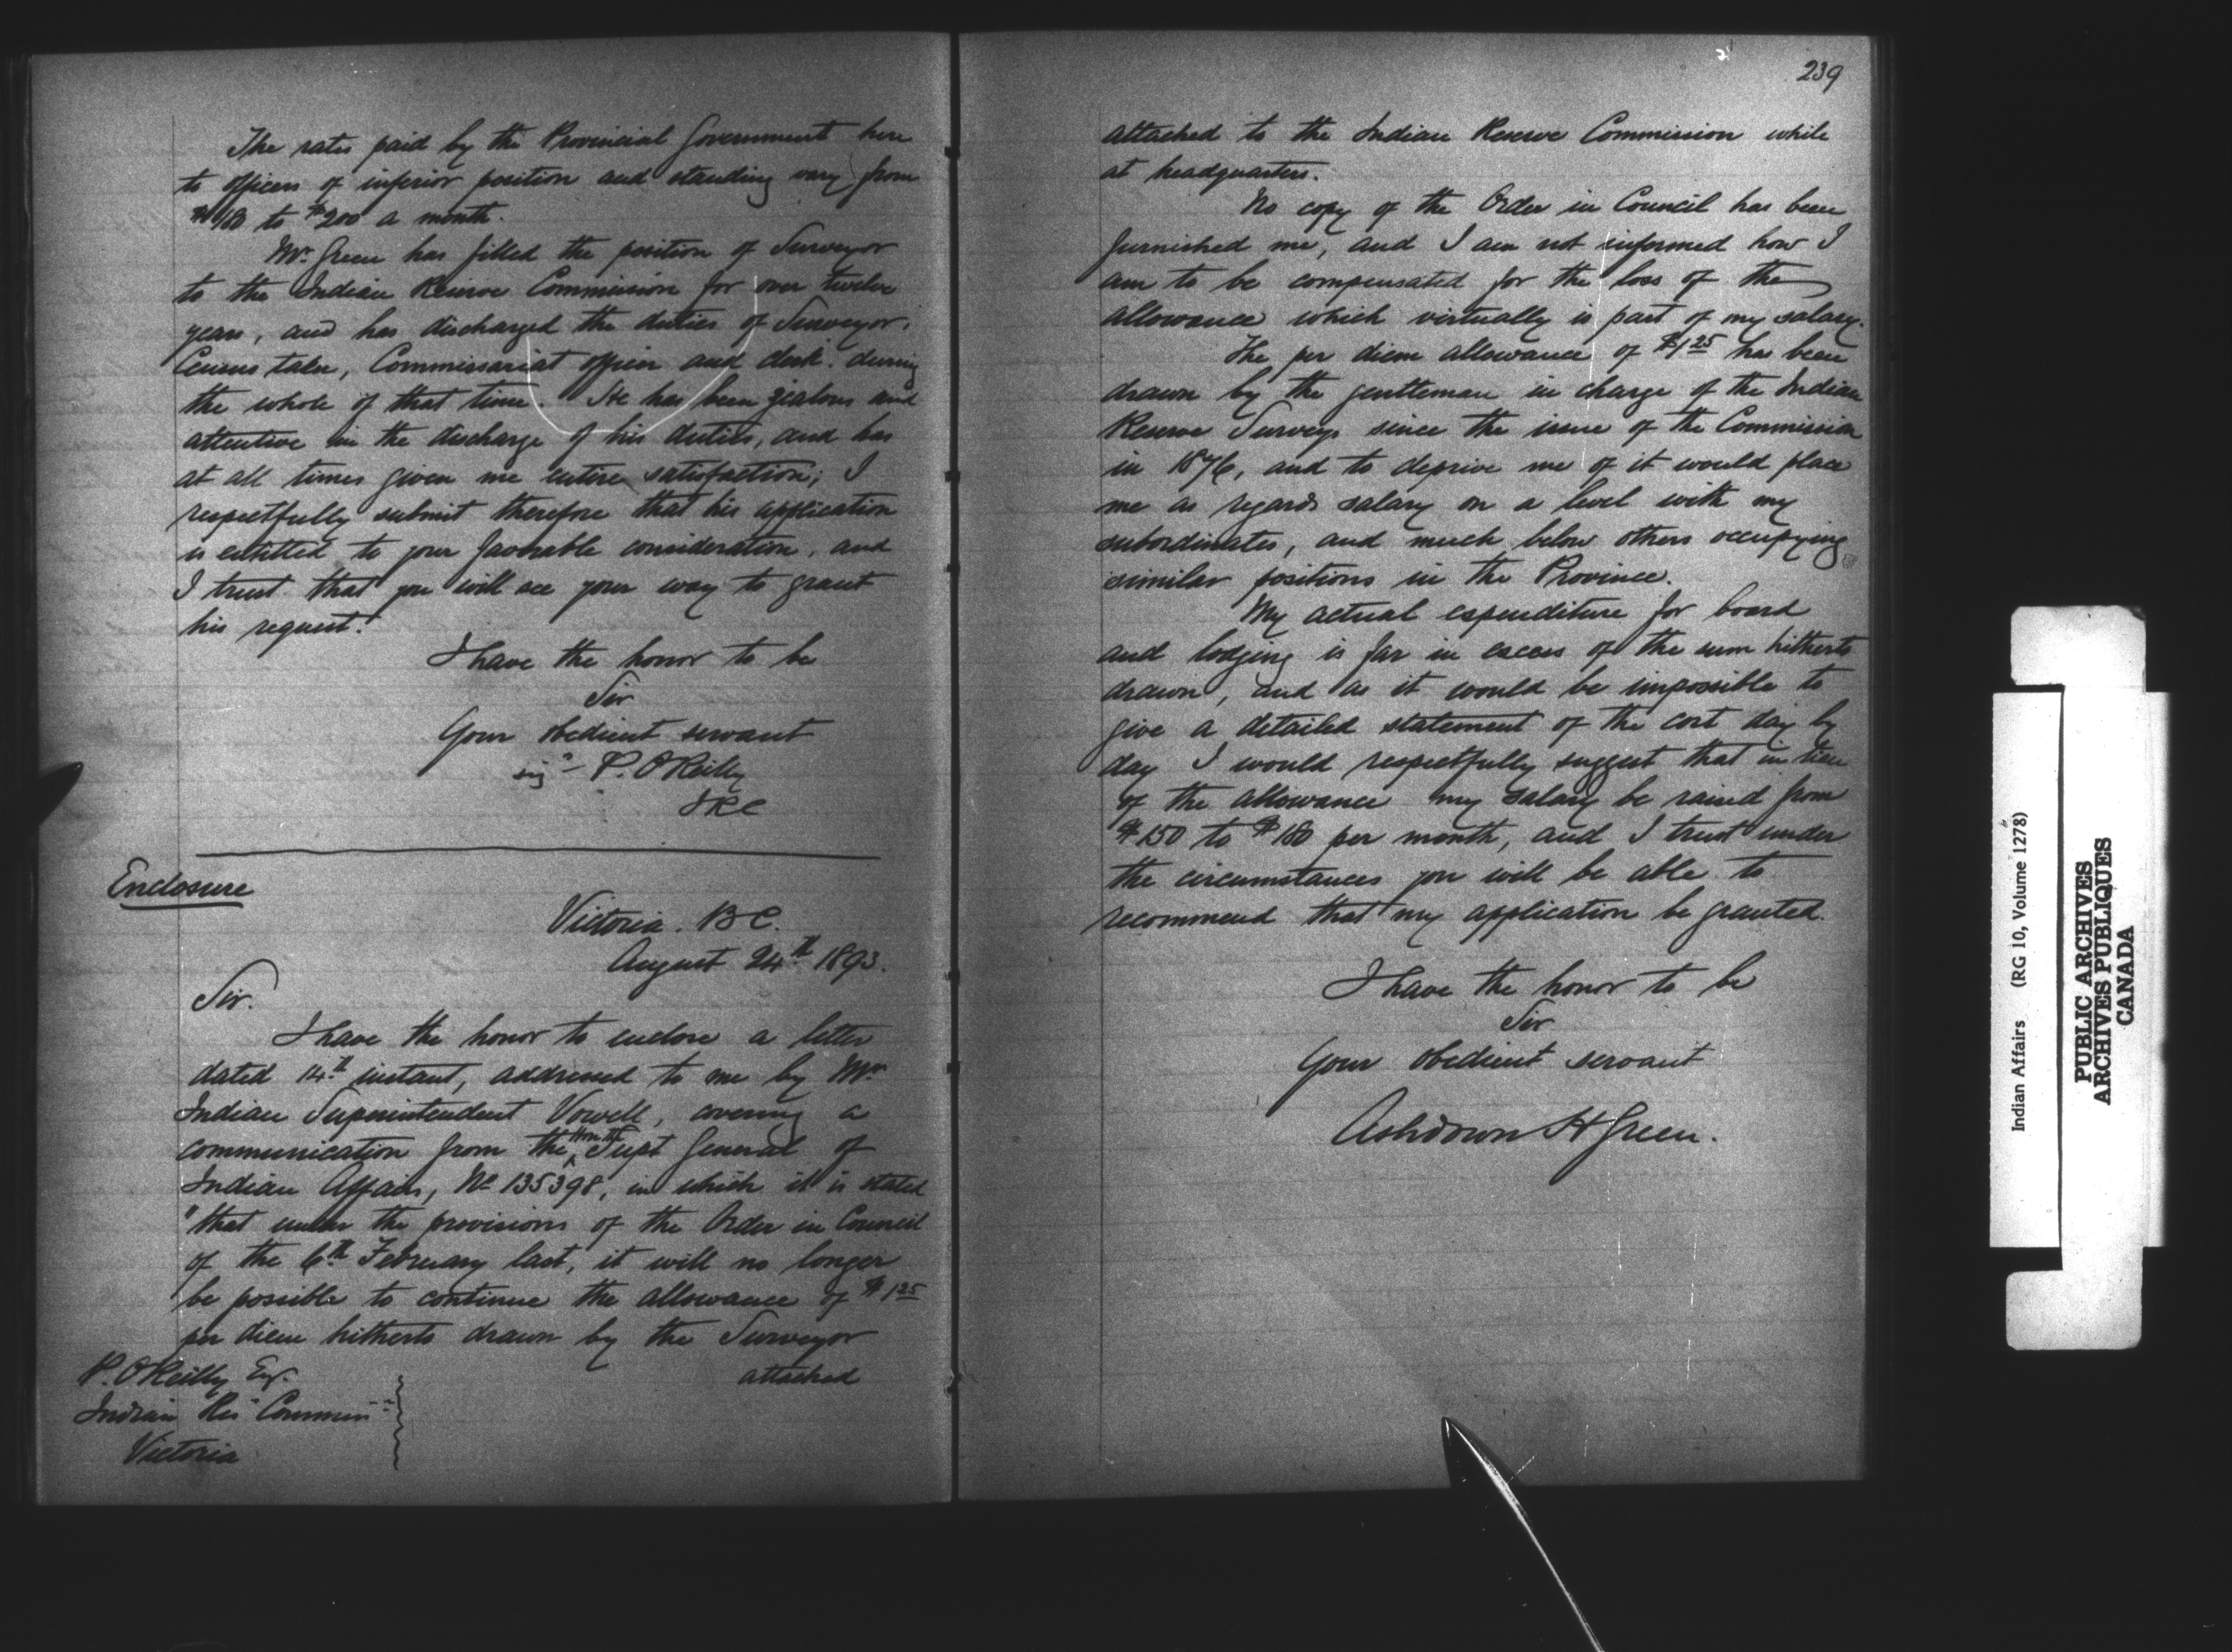 The rates paid by the Provincial Government here
to officers of inferior position and standing vary from
$180 to $200 a month.
Mr. Green has filled the position of Surveyor
to the Indian Reserve Commission for over twelve
years, and has discharged the duties of Surveyor,
Census taker, Commissariat officer and clerk during
the whole of that time. He has been zealous and
attentive in the discharge of his duties, and has
at all times given me entire satisfaction; I
respectfully submit therefore that his application
is entitled to your favorable consideration, and
I trust that you will see your way to grant
his request.
I have the honor to be
Sir
Your obedient servant
sigd P. O'Reilly
IRC
Enclosure
Victoria. B C.
August 24th 1893.
Sir.
I have the honor to enclose a letter
dated 14th instant, addressed to me by Mr
Indian Superintendent Vowell, covering a
communication from the Honble Supt General of
Indian Affairs, No 135398, in which it is stated
"that under the provisions of the Order in Council
of the 6th February last, it will no longer
be possible to continue the allowance of $1.25
per diem hitherto drawn by the Surveyor
attached
P. O'Reilly Esq.
Indian Res Commissr
Victoria
239
attached to the Indian Reserve Commission while
at headquarters.
No copy of the Order in Council has been
furnished me, and I am not informed how I
am to be compensated for the loss of the
allowance which virtually is part of my salary.
The per diem allowance of $1.25 has been
drawn by the gentleman in charge of the Indian
Reserve Surveys since the issue of the Commission
in 1876, and to deprive me of it would place
me as regards salary on a level with my
subordinates, and much below others occupying
similar positions in the Province.
My actual expenditure for board
and lodging is far in excess of the sum hitherto
drawn, and as it would be impossible to
give a detailed statement of the cost day by
day I would respectfully suggest that in lieu
of the allowance my salary be raised from
$150 to $180 per month, and I trust under
the circumstances you will be able to
recommend that my application be granted.
I have the honor to be
Sir
Your obedient servant
Ashdown H Green.
Indian Affairs (RG 10, Volume 1278)
PUBLIC ARCHIVES
ARCHIVES PUBLIQUES
CANADA